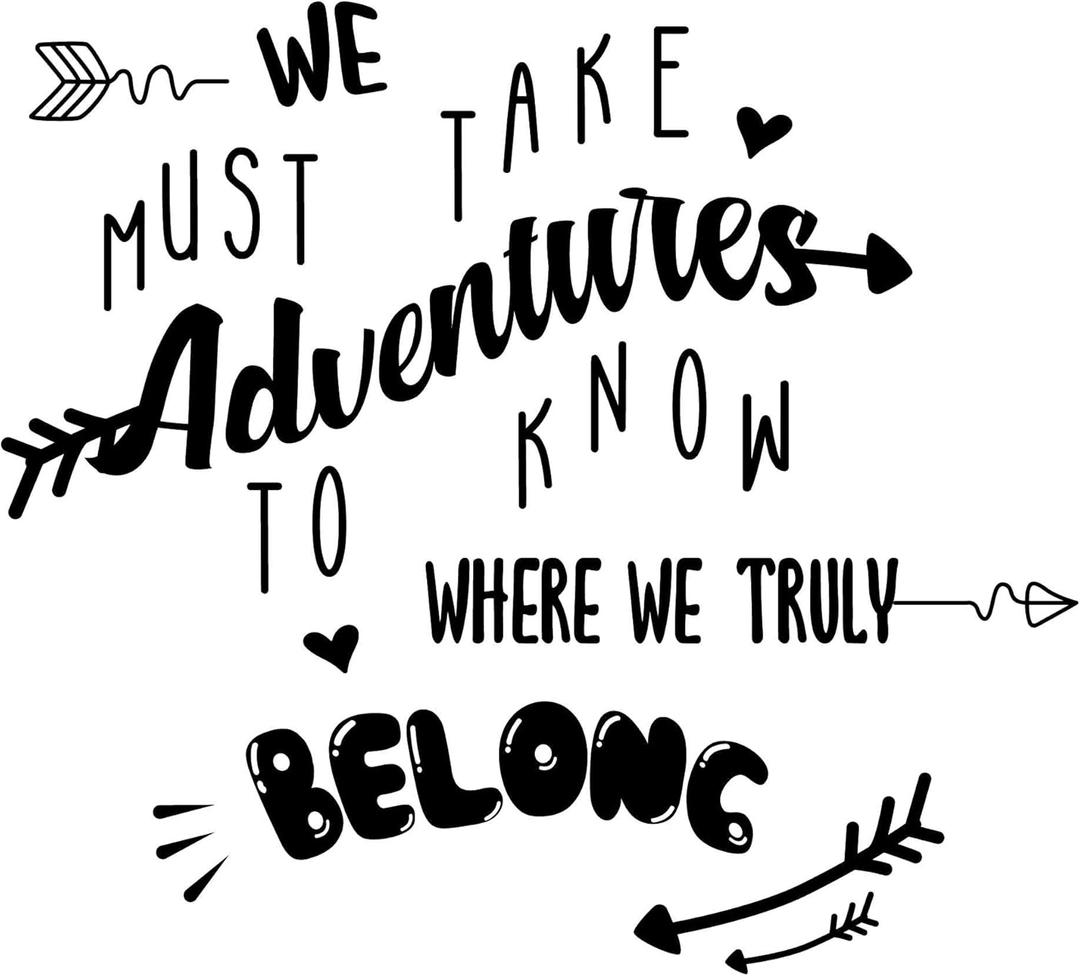 WE
MUST TAKE
Adventures
TO KNOW
WHERE WE TRULY
BELONG